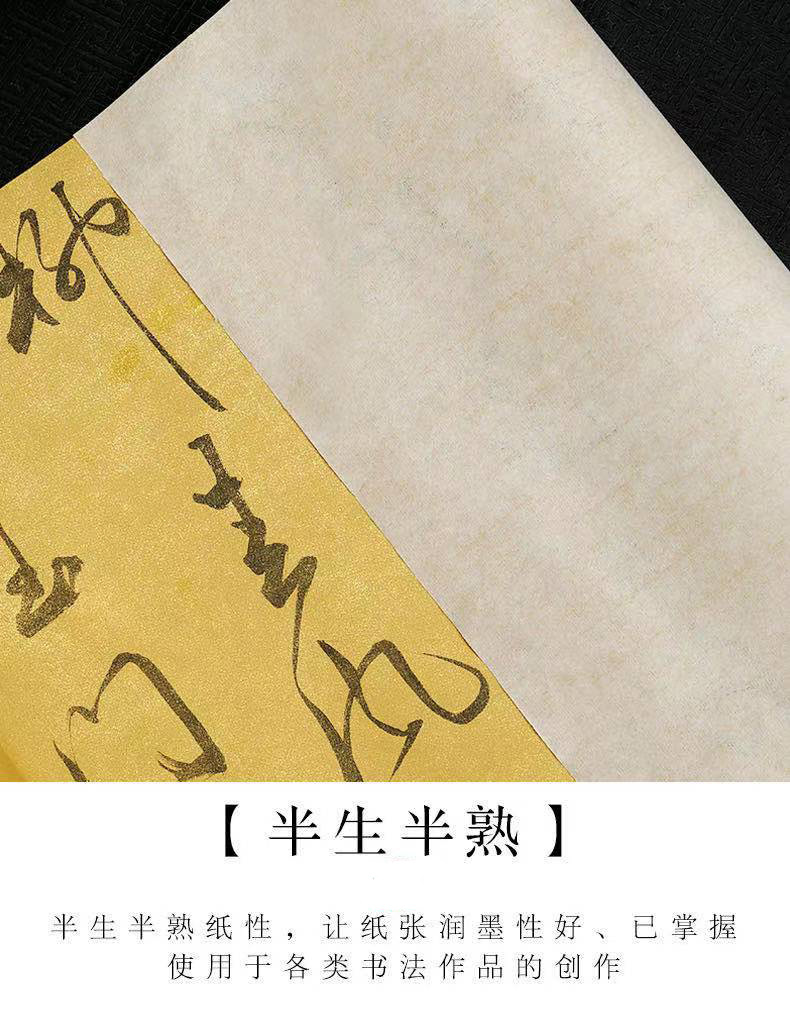 春风
【半生半熟】
半生半熟纸性，让纸张润墨性好、已掌握
使用于各类书法作品的创作